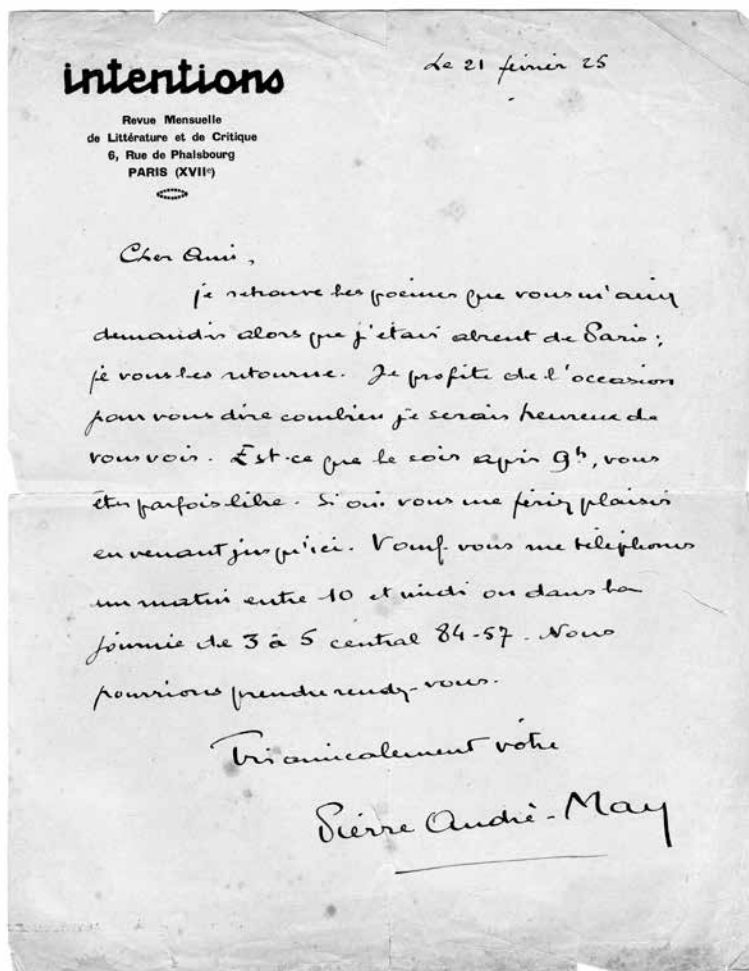 intentions
Le 21 février 25
Revue Mensuelle
de Littérature et de Critique
6, Rue de Phalsbourg
PARIS (XVIIe)
Cher Ami,
je retrouve les poèmes que vous m'aviez
demandés alors que j'étais absent de Paris ;
je vous les retourne. Je profite de l'occasion
pour vous dire combien je serais heureux de
vous voir. Est-ce que le soir après 9h, vous
êtes parfois libre. Si oui vous me feriez plaisir
en venant jusqu'ici. vous me téléphoner
un matin entre 10 et midi ou dans la
journée de 3 à 5 central 84-57. Nous
pourrions prendre rendez-vous.
Très amicalement vôtre
Pierre André-May